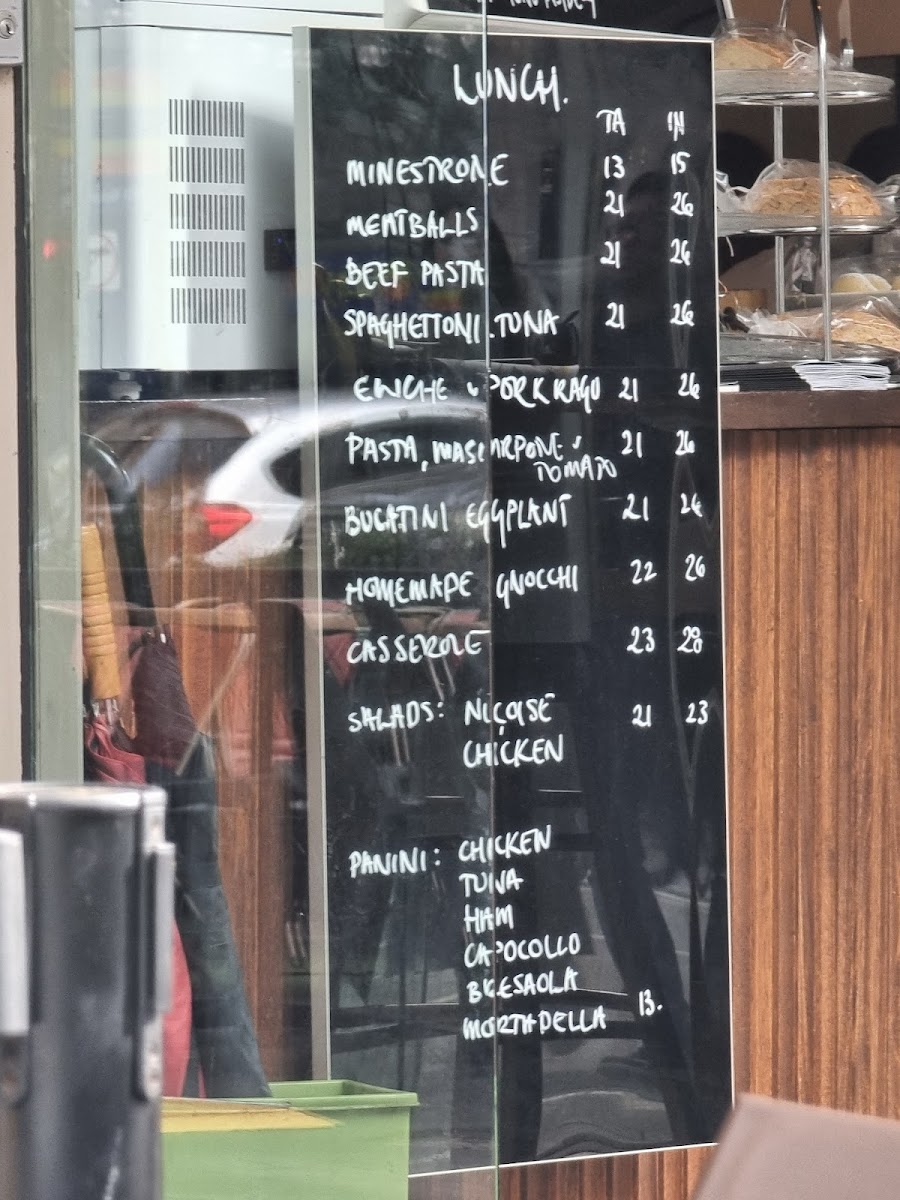 LUNCH.
TA IN
MINESTRONE 13 15
MEATBALLS 21 26
BEEF PASTA 21 26
SPAGHETTONI.TUNA 21 26
PORK RAGU 21 26
PASTA, MASCARPONE TOMATO 21 26
BUCATINI EGGPLANT 21 26
HOMEMADE GNOCCHI 22 26
CASSEROLE 23 28
SALADS: NIÇOISE 21 23
CHICKEN
PANINI: CHICKEN
TUNA
HAM
CAPOCOLLO
BRESAOLA
MORTADELLA 13.